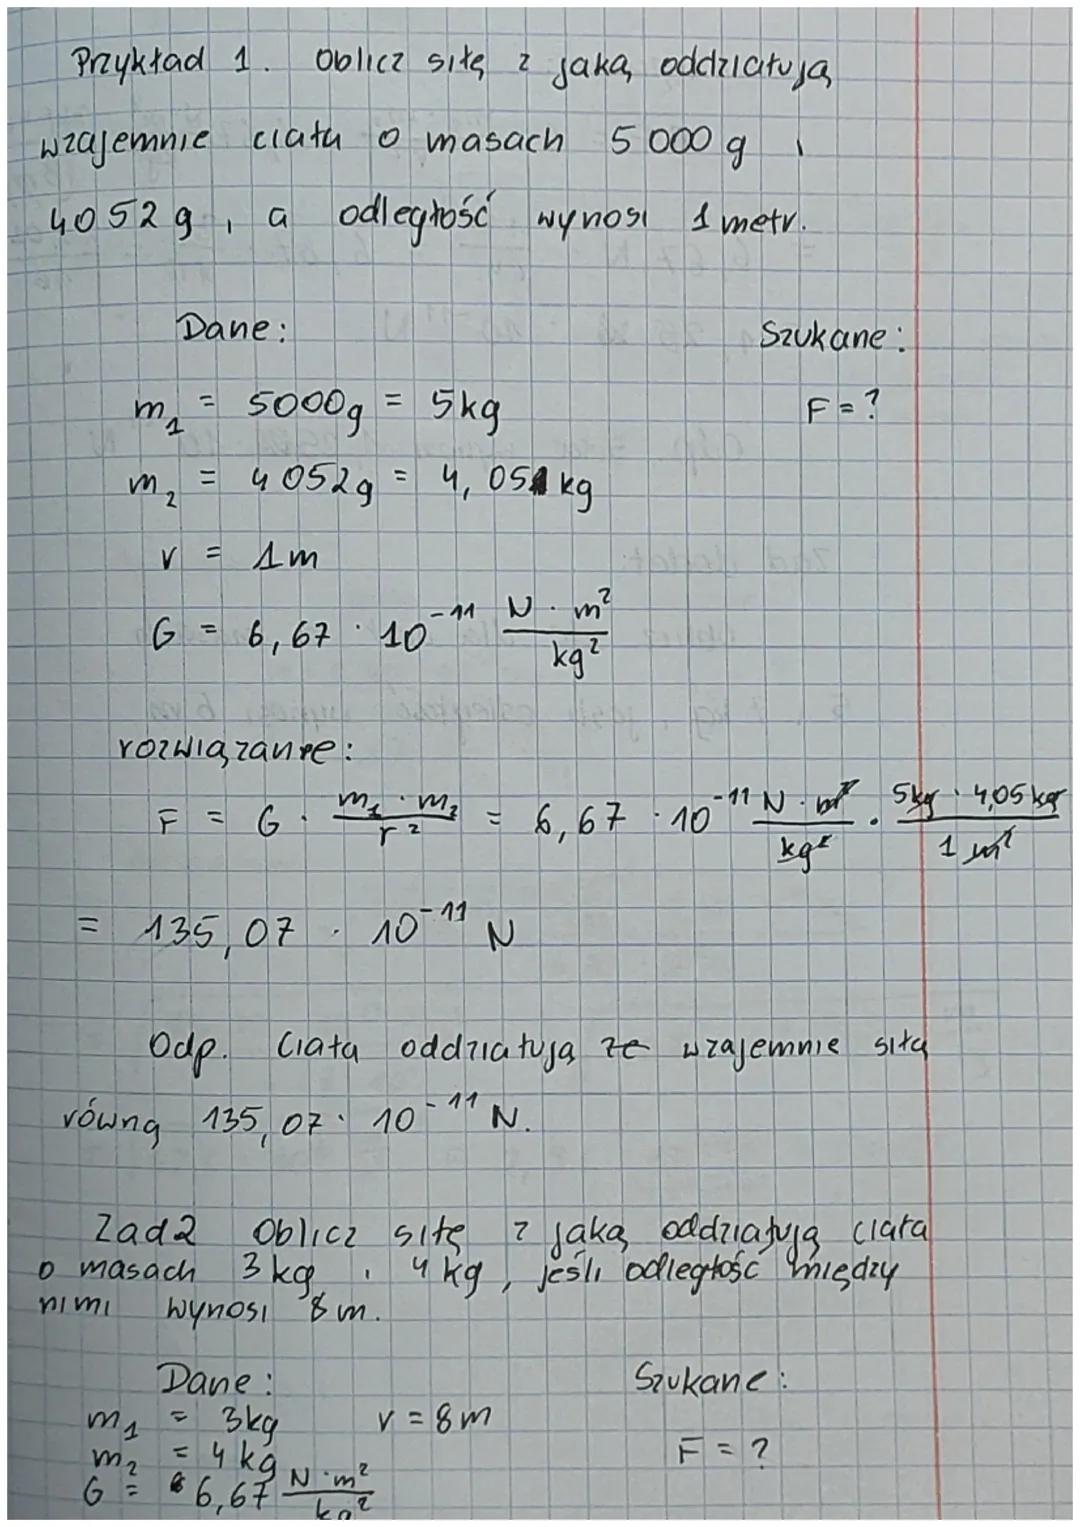 Przykład 1. Oblicz siłę z jaką oddziałują
wzajemnie ciała o masach 5000 g i
4052 g, a odległość wynosi 1 metr.
Dane: Szukane:
m₁ = 5000g = 5kg F = ?
m₂ = 4052g = 4,05 kg
r = 1m
G = 6,67 · 10⁻¹¹ N · m² / kg²
rozwiązanie:
F = G · m₁ · m₂ / r² = 6,67 · 10⁻¹¹ N · m² / kg² · 5kg · 4,05 kg / 1 m²
= 135,07 · 10⁻¹¹ N
Odp. Ciała oddziałują ze wzajemnie siłą
równą 135,07 · 10⁻¹¹ N.
Zad 2 Oblicz siłę z jaką oddziałują ciała
o masach 3 kg i 4 kg, jeśli odległość między
nimi wynosi 8 m.
Dane: Szukane:
m₁ = 3kg r = 8m
m₂ = 4 kg F = ?
G = 6,67 N · m² / kg²